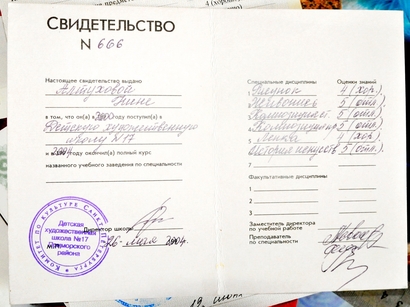 СВИДЕТЕЛЬСТВО
N 666
Настоящее свидетельство выдано
Алтуховой
Нине
в том, что он(а) в 2000 году поступил(а) в
Детскую художественную
школу N17
и в 2004 окончил(а) полный курс
названного учебного заведения по специальности
Директор школы
26 мая 2004г.
Детская
художественная
школа №17
Приморского
района
КОМИТЕТ ПО КУЛЬТУРЕ САНКТ-ПЕТЕРБУРГА
Специальные дисциплины Оценки знаний
1. Рисунок 4 (хор.)
2. Живопись 5 (отл.)
3. 5 (отл.)
4. Композиция 5 (отл.)
5. Лепка 5 (хор.)
6. История искусств 5 (отл.)
7
Факультативные дисциплины
1
2
3
Заместитель директора
по учебной работе
Преподаватель
по специальности